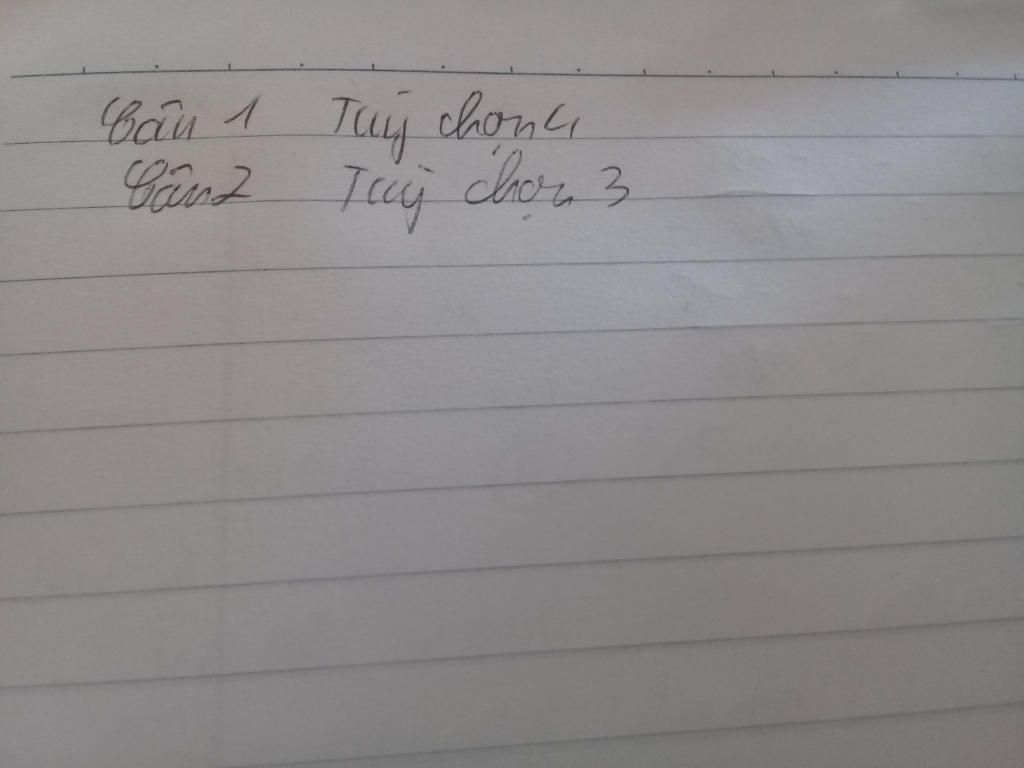 Câu 1 Tuỳ chọn 4
Câu 2 Tuỳ chọn 3